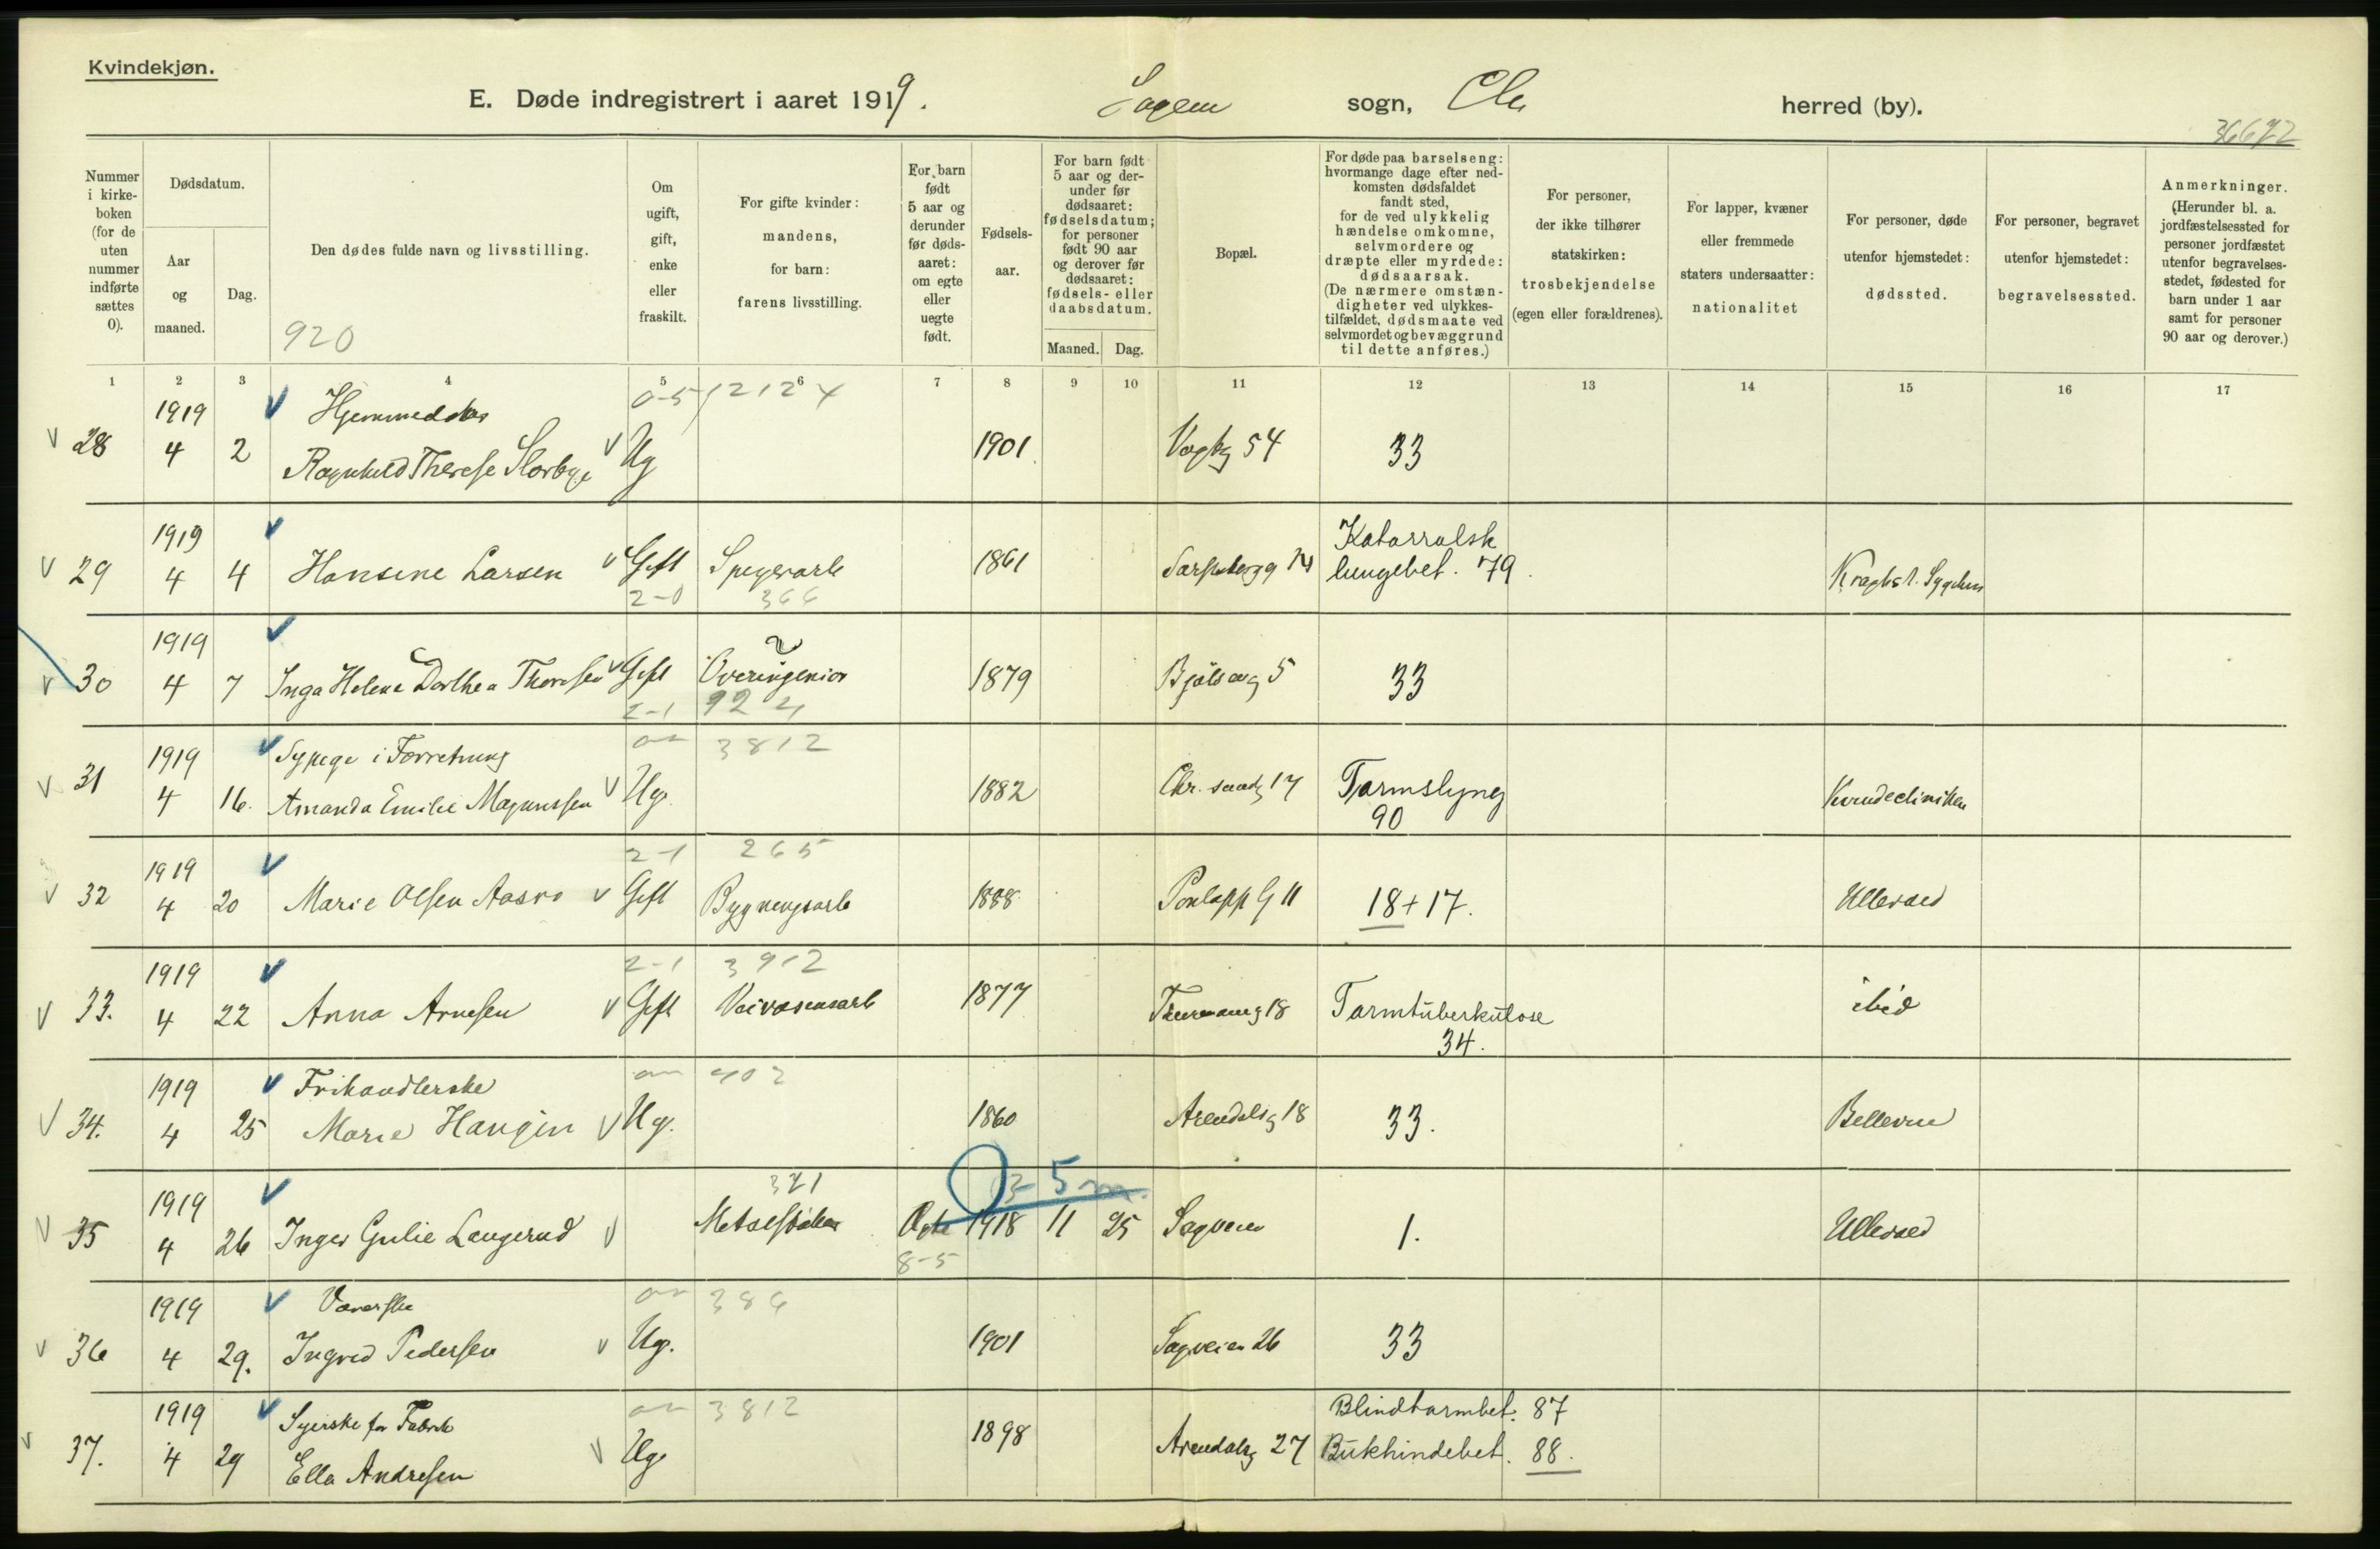 Kvindekjøn.
E. Døde indregistrert i aaret 1919. Sagene sogn, Chr herred (by).
36672
Nummer i kirke-boken (for de uten nummer indførte sættes 0).
Dødsdatum.
Aar og maaned.
Dag.
Den dødes fulde navn og livsstilling.
920
Om ugift, gift, enke eller fraskilt.
For gifte kvinder: mandens, for barn: farens livsstilling.
For barn født 5 aar og derunder før døds-aaret: om egte eller uegte født.
Fødsels-aar.
For barn født 5 aar og der-under før dødsaaret: fødselsdatum; for personer født 90 aar og derover før dødsaaret: fødsels- eller daabsdatum.
Maaned. Dag.
Bopæl.
For døde paa barselseng: hvormange dage efter ned-komsten dødsfaldet fandt sted, for de ved ulykkelig hændelse omkomne, selvmordere og dræpte eller myrdede: dødsaarsak. (De nærmere omstæn-digheter ved ulykkes-tilfældet, dødsmaate ved selvmordet og bevæggrund til dette anføres.)
For personer, der ikke tilhører statskirken: trosbekjendelse (egen eller forældrenes).
For lapper, kvæner eller fremmede staters undersaatter: nationalitet
For personer, døde utenfor hjemstedet: dødssted.
For personer, begravet utenfor hjemstedet: begravelsessted.
Anmerkninger. (Herunder bl. a. jordfæstelsessted for personer jordfæstet utenfor begravelses-stedet, fødested for barn under 1 aar samt for personer 90 aar og derover.)
1 2 3 4 5 6 7 8 9 10 11 12 13 14 15 16 17
1919 Hjemmedatter 0-5 1212 4
28 4 2 Ragnhild Therese Storbye Ug 1901 Vogtsg 54 33
1919 Katarralsk
29 4 4 Hansine Larsen Gift 1861 Sarpsborgg 14 lungebet. 79. Kroghst. Sygehus
2-0 366
1919
30 4 7 Inga Helene Dorthea Thoresen Gift Overingeniør 1879 Bjølseng 5 33
2-1 92 4
1919 Sypige i Forretning 3812
31 4 16. Amanda Emilie Magnussen Ug. 1882 Chr. sandg 17 Tarmslyng Kvindecliniken
90
1919 2-1 265
32 4 20 Marie Olsen Aasvo Gift Bygningsarb 1888 11 18+17. Ullevaal
1919 2-1 3912
33. 4 22 Anna Arnesen Gift Veivæsensarb 1877 18 Tarmtuberkulose ibid
34.
1919 Frihandlerske 402
34. 4 25 Marie Haugin Ug. 1860 Arendalsg 18 33. Bellevue
1919 321 5 m.
35 4 26 Inger Gulie Laugerud Ægte 1918 11 25 Sagveien 1. Ullevaal
8-5
1919 Væverske 386
36 4 29. Ingrid Pedersen Ug. 1901 Sagveien 26 33
1919 Syerske for Fabrik 3812 Blindtarmbet. 87
37. 4 29 Ella Andresen Ug 1898 Arendalsg 27 Bukhindebet. 88.